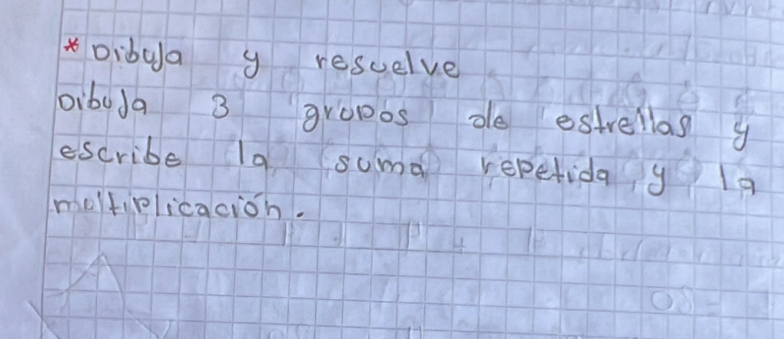 * Dibuja y resuelve
Dibuja 3 grupos de estrellas y
escribe la suma repetida y la
multiplicación.